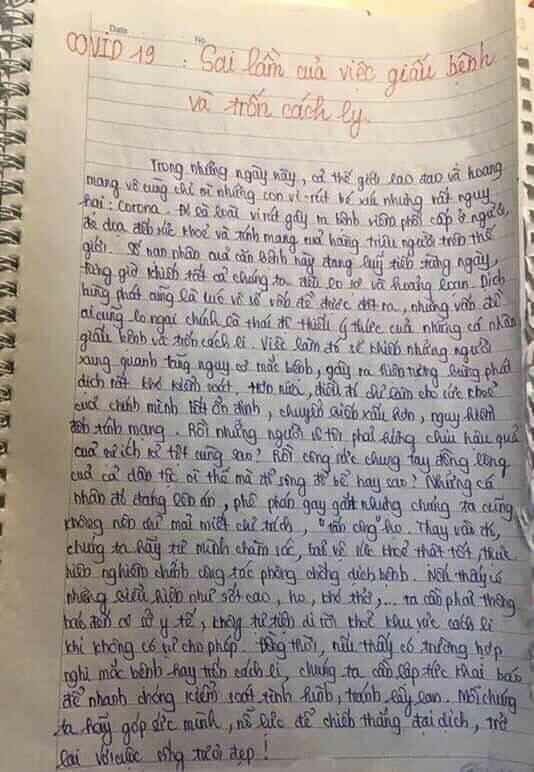 Date
No.
COVID 19 : Sai lầm của việc giấu bệnh
và trốn cách ly.
Trong những ngày này, cả thế giới lao đao và hoang
mang vô cùng chỉ vì những con vi-rút bé xíu nhưng rất nguy
hại: Corona. Đó là loài vi rút gây ra bệnh viêm phổi cấp ở người,
đe dọa đến sức khoẻ và tính mạng của hàng triệu người trên thế
giới. Số nạn nhân của căn bệnh này đang luỹ tiến từng ngày,
từng giờ khiến tất cả chúng ta đều lo sợ và hoảng loạn. Dịch
bùng phát cũng là lúc vô số vấn đề được đặt ra, nhưng vấn đề
ai cũng lo ngại chính là thái độ thiếu ý thức của những cá nhân
giấu bệnh và trốn cách li. Việc làm đó sẽ khiến những người
xung quanh tăng nguy cơ mắc bệnh, gây ra hiện tượng bùng phát
dịch rất khó kiểm soát. Hơn nữa, điều đó chỉ làm cho sức khoẻ
của chính mình bất ổn định, chuyển biến xấu hơn, nguy hiểm
đến tính mạng. Rồi những người bị tội phải hứng chịu hậu quả
của sự ích kỉ tột cùng sao? Rồi công sức chung tay đồng lòng
của cả dân tộc vì thế mà đổ sông đổ bể hay sao? Những cá
nhân đó đang lên án, phê phán gay gắt nhưng chúng ta cũng
không nên chỉ mải miết chỉ trích, "tấn công" họ. Thay vào đó,
chúng ta hãy tự mình chăm sóc, bảo vệ sức khoẻ thật tốt, thực
hiện nghiêm chỉnh công tác phòng chống dịch bệnh. Nếu thấy có
những biểu hiện như sốt cao, ho, khó thở,... ta cần phải thông
báo đến cơ sở y tế, không tự tiện di rời khỏi khu vực cách li
khi không có sự cho phép. Đồng thời, nếu thấy có trường hợp
nghi mắc bệnh hay trốn cách li, chúng ta cần lập tức khai báo
để nhanh chóng kiểm soát tình hình, tránh lây lan. Mỗi chúng
ta hãy góp sức mình, nỗ lực để chiến thắng đại dịch, trở
lại với cuộc sống tươi đẹp!